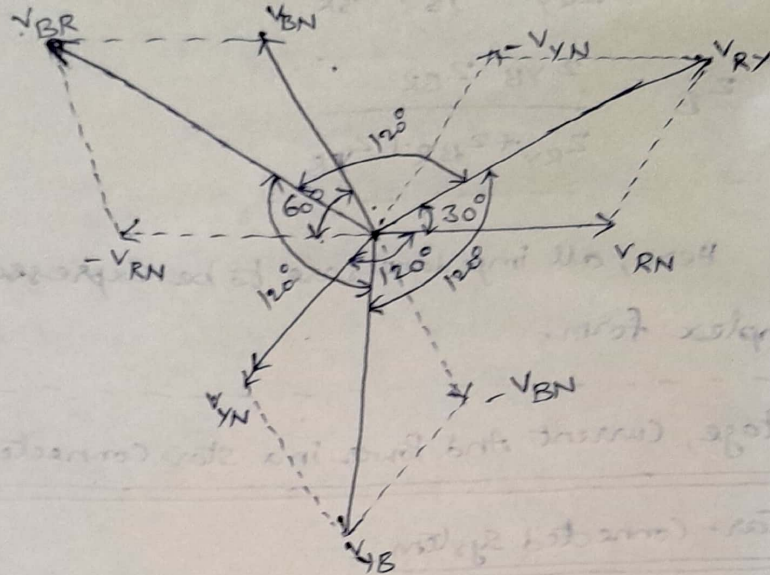 V_BR
V_BN
-V_YN
V_RY
120°
60°
30°
-V_RN
V_RN
120°
120°
120°
V_YN
-V_BN
V_YB